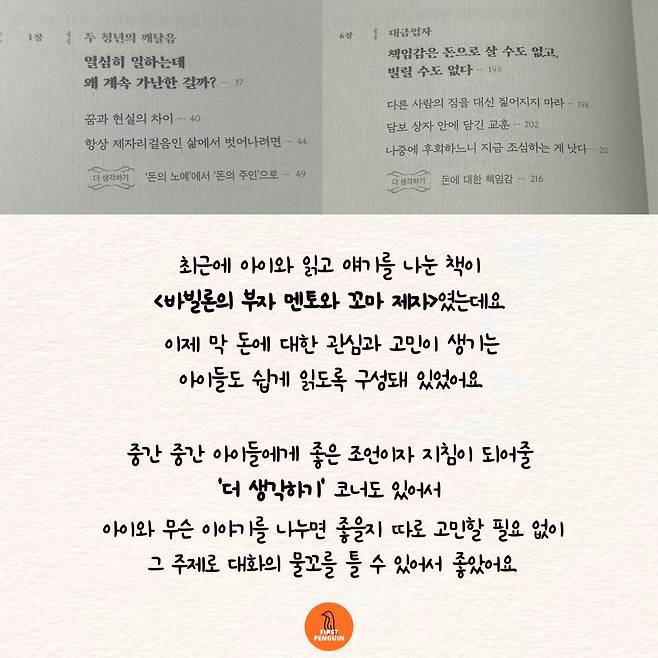 1장 두 청년의 깨달음
열심히 일하는데
왜 계속 가난한 걸까? … 37
꿈과 현실의 차이 … 40
항상 제자리걸음인 삶에서 벗어나려면 … 44
더 생각하기 '돈의 노예'에서 '돈의 주인'으로 … 49
6장 대금업자
책임감은 돈으로 살 수도 없고,
빌릴 수도 없다 … 193
다른 사람의 짐을 대신 짊어지지 마라 … 198
담보 상자 안에 담긴 교훈 … 202
나중에 후회하느니 지금 조심하는 게 낫다 … 211
더 생각하기 돈에 대한 책임감 … 216
최근에 아이와 읽고 얘기를 나눈 책이
<바빌론의 부자 멘토와 꼬마 제자>였는데요
이제 막 돈에 대한 관심과 고민이 생기는
아이들도 쉽게 읽도록 구성돼 있었어요
중간 중간 아이들에게 좋은 조언이자 지침이 되어줄
'더 생각하기' 코너도 있어서
아이와 무슨 이야기를 나누면 좋을지 따로 고민할 필요 없이
그 주제로 대화의 물꼬를 틀 수 있어서 좋았어요
FIRST
PENGUIN